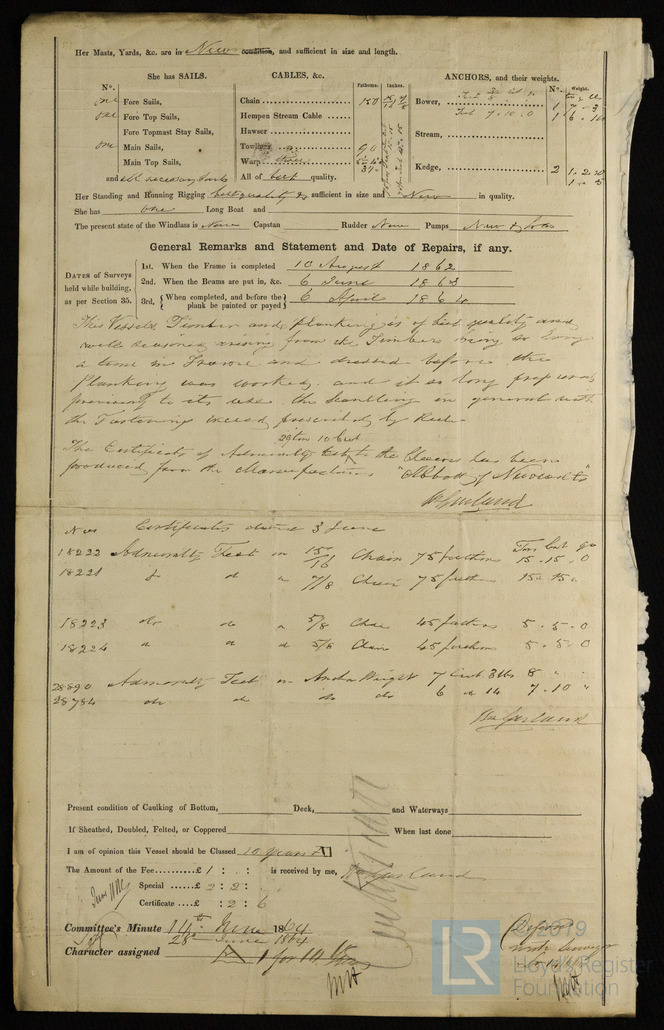 Her Masts, Yards, &c. are in New condition, and sufficient in size and length.
She has SAILS.
No.
one Fore Sails,
one Fore Top Sails,
Fore Topmast Stay Sails,
one Main Sails,
Main Top Sails,
and all necessary
CABLES, &c.
Fathoms. Inches.
Chain 150
Hempen Stream Cable
Hawser
Towlines 90
Warp
All of best quality.
ANCHORS, and their weights.
No. Weight.
Bower, 1 7 - 3
1 6 - 14
Stream,
Kedge, 2
Her Standing and Running Rigging best quality & sufficient in size and New in quality.
She has one Long Boat and
The present state of the Windlass is New Capstan Rudder New Pumps New &
General Remarks and Statement and Date of Repairs, if any.
DATES of Surveys held while building, as per Section 35.
1st. When the Frame is completed 10 August 1862
2nd. When the Beams are put in, &c. 6 June 1863
3rd, { When completed, and before the plank be painted or payed } 6 April 1864
This Vessels Timber and planking is of best quality and
well seasoned arising from the Timbers being so long
a time in Frame and dressed before the
Planking was worked. and it so long prepared
previous to its use. the scantling in general with
the Fastenings exceed prescribed by Rule.
29 ton 10 Cwt
The Certificate of Admiralty Test to the has been
produced from the Manufacturers "Abbot of Newcastle"
Nos Certificates dated 3 June
18222 Admiralty Test on 15/16 Chain 75 fathoms 15 . 15 . 0
18221 do do 7/8 Chain 75 fathoms
18223 do do 5/8 Chain 45 fathoms 5 . 5 . 0
18224 5/8 Chain 45 fathoms 5 . 5 . 0
28890 Admiralty Test on Anchor Weight 7 Cwt 3 lbs 8
28784 do do do do 6 14 7 . 10
Wm Garland
Present condition of Caulking of Bottom, Deck, and Waterways
If Sheathed, Doubled, Felted, or Coppered When last done
I am of opinion this Vessel should be Classed 10 Years A
The Amount of the Fee £ 1 : : is received by me,
Special £ 2 : 2 :
Certificate £ : 2 : 6
Committee's Minute 14th June 1864
28th June 1864
Character assigned A 1 for 10 Yrs
MH
MH
LR
©2019
Lloyd's Register
Foundation